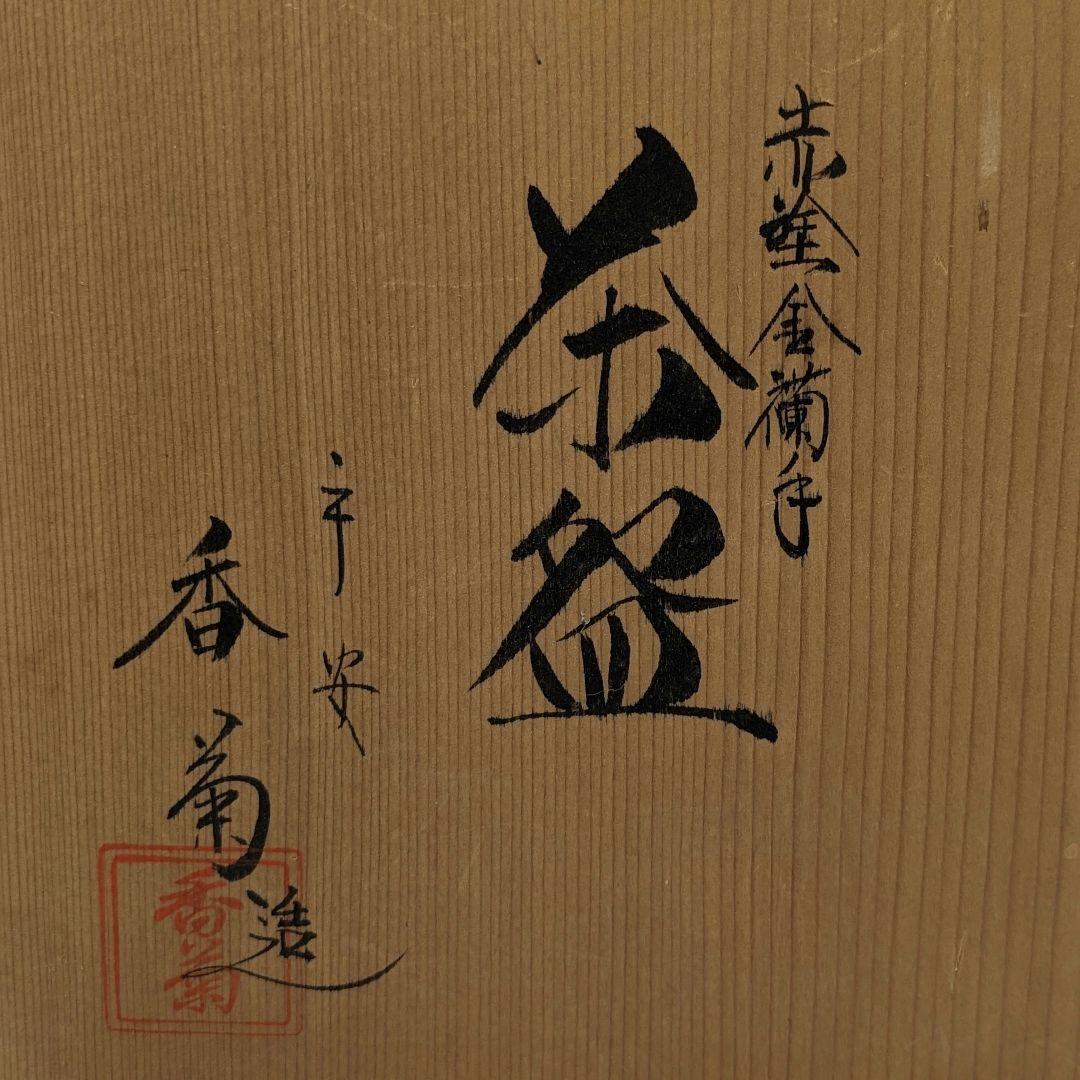 赤塗金襴手
茶盌
平安
香菊造
香菊